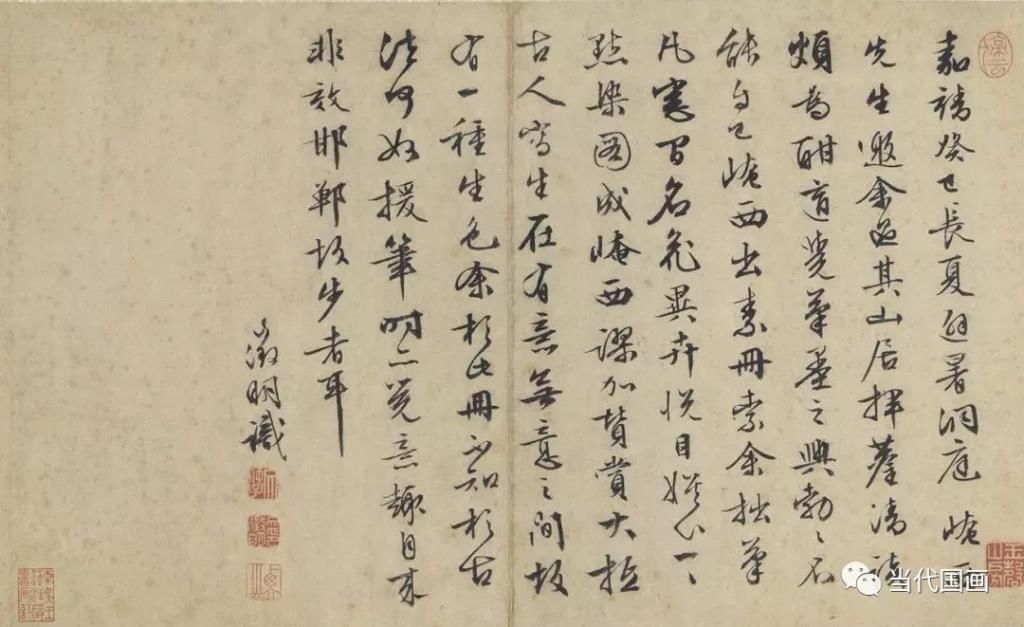 嘉靖癸巳長夏避暑洞庭崦西
先生邀余過其山居揮麈清談
頗為酣適覺筆墨之興勃〻不
能自已崦西出素冊索余拙筆
凡窓間名花異卉悅目娛心一〻
點染圖成崦西謬加賛賞大抵
古人寫生在有意無意之間故
有一種生色余於此冊不知於古
法何如援筆時亦覺意趣自來
非效邯鄲故步者耳
徵明識
當代国画